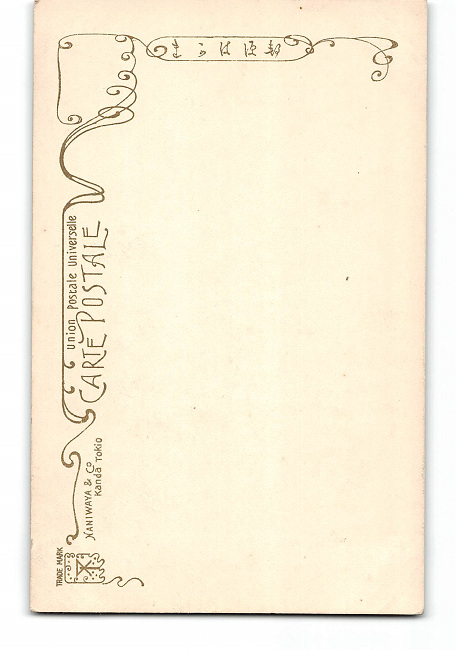 きかは便郵
Union Postale Universelle
CARTE POSTALE
NANIWAYA & Co
Kanda Tokio
TRADE MARK